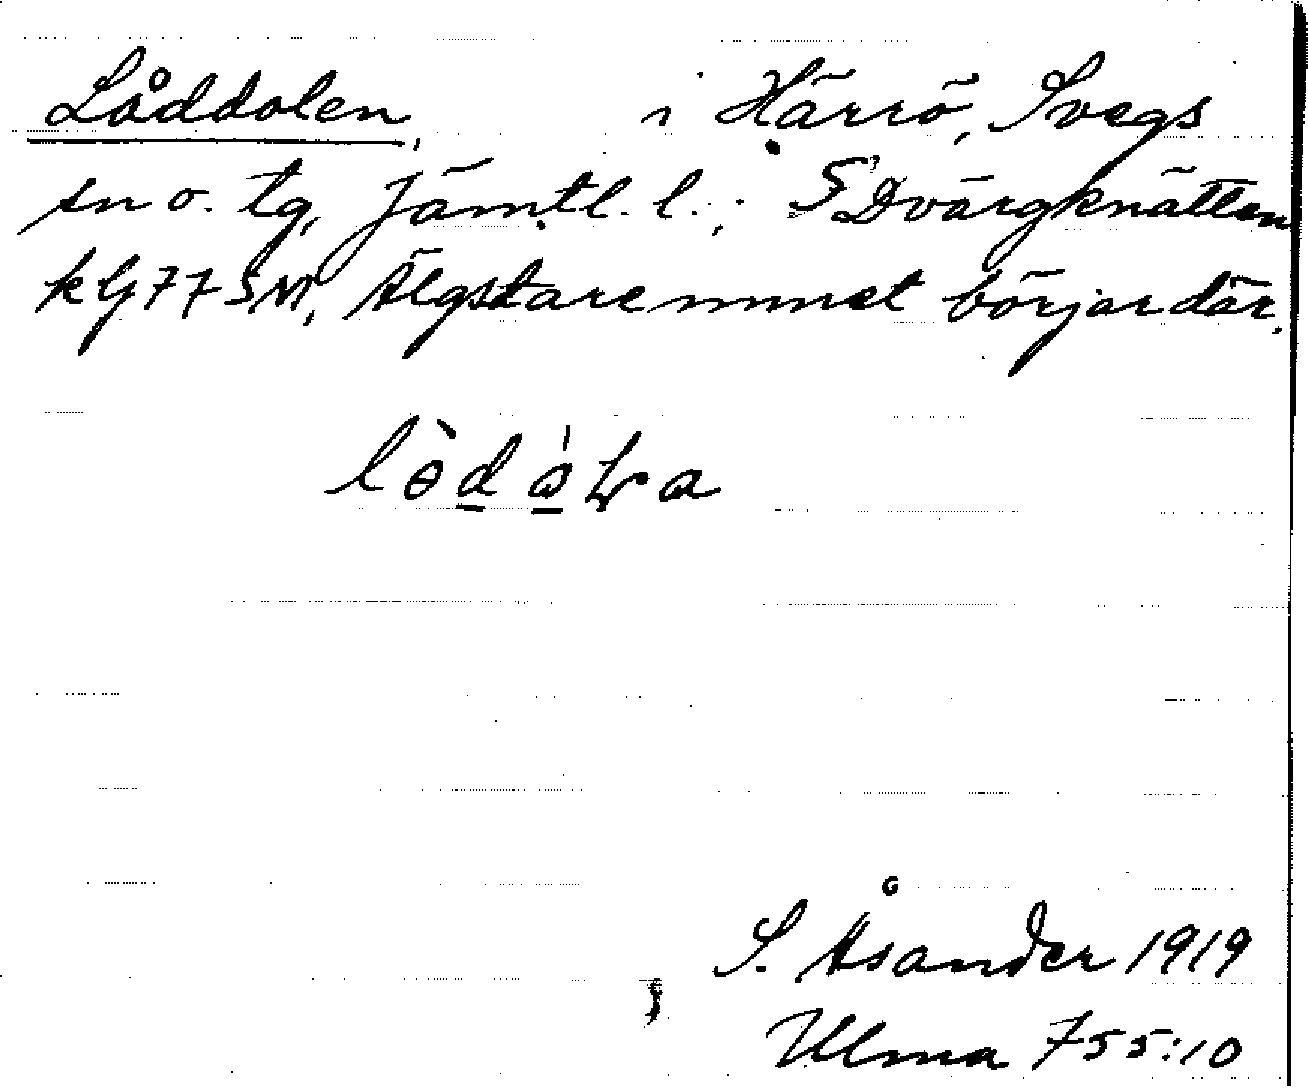 Låddalen, i Härrö, Svegs
sn o. tg, Jämtl. l.; S Dvärgknätten
kG77SM, Älgstaremmet börjar där.
S. Åsander 1919
Ulma 755:10